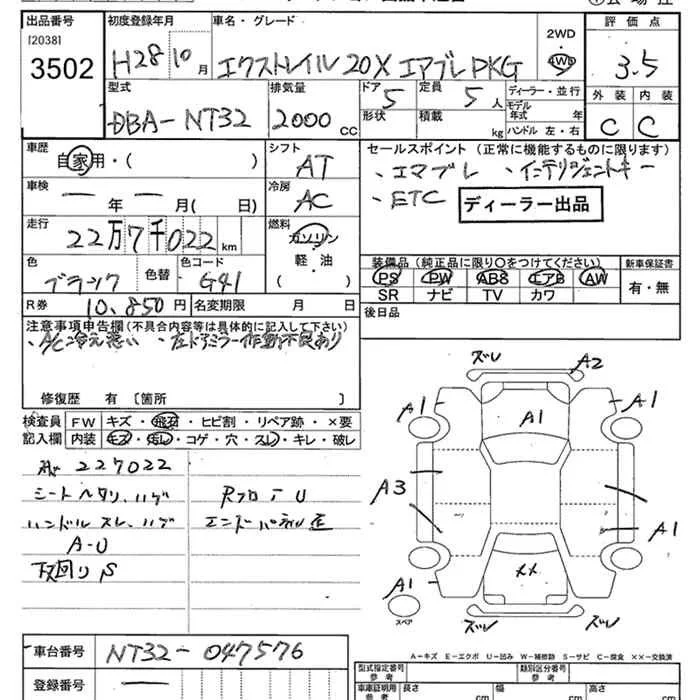 出品番号 初度登録年月 車名・グレード 2WD ・ 4WD 評価点
[2038]
3502 H28 10月 エクストレイル 20X エマブレPKG 3.5
型式 排気量 ドア 定員 ディーラー・並行 外装 内装
DBA-NT32 2000 CC 5 5人 モデル年式 年 C C
形状 積載 kg ハンドル 左・右
車歴 自家用・( ) シフト AT セールスポイント(正常に機能するものに限ります)
、エマブレ 、インテリジェントキー
車検 ー年ー月( 日) 冷房 AC 、ETC ディーラー出品
走行 22万7千022km 燃料 ガソリン・軽・油( )
色 ブラック 色替 色コード G41
装備品(純正品に限り○をつけてください) 新車保証書
PS PW ABS エアB AW 有・無
SR ナビ TV カワ
R券 10,850円 名変期限 月 日 後日品
注意事項申告欄(不具合内容等は具体的に記入して下さい)
、A/C冷え悪い 、左ドアミラー作動不良あり
修復歴 有 〔箇所 〕
検査員記入欄 FW キズ・飛石・ヒビ割・リペア跡・×要
内装 キズ・汚レ・コゲ・穴・スレ・キレ・破レ
227022
シートヘタリ、ハゲ RフロアU
ハンドルスレ、ハゲ エンドパネル歪
A-U
下回りS
ズレ A2
A1 A1 A1
A3 A1
A1 ××
スペア ズレ ズレ
A-キズ E-エクボ U-凹み W-補修跡 S-サビ C-腐食 ××-交換済
車台番号 NT32-047576
登録番号 ー
型式指定番号 参考 類別区分番号 参考
車庫証明用 参考 長さ cm 幅 cm 高さ cm